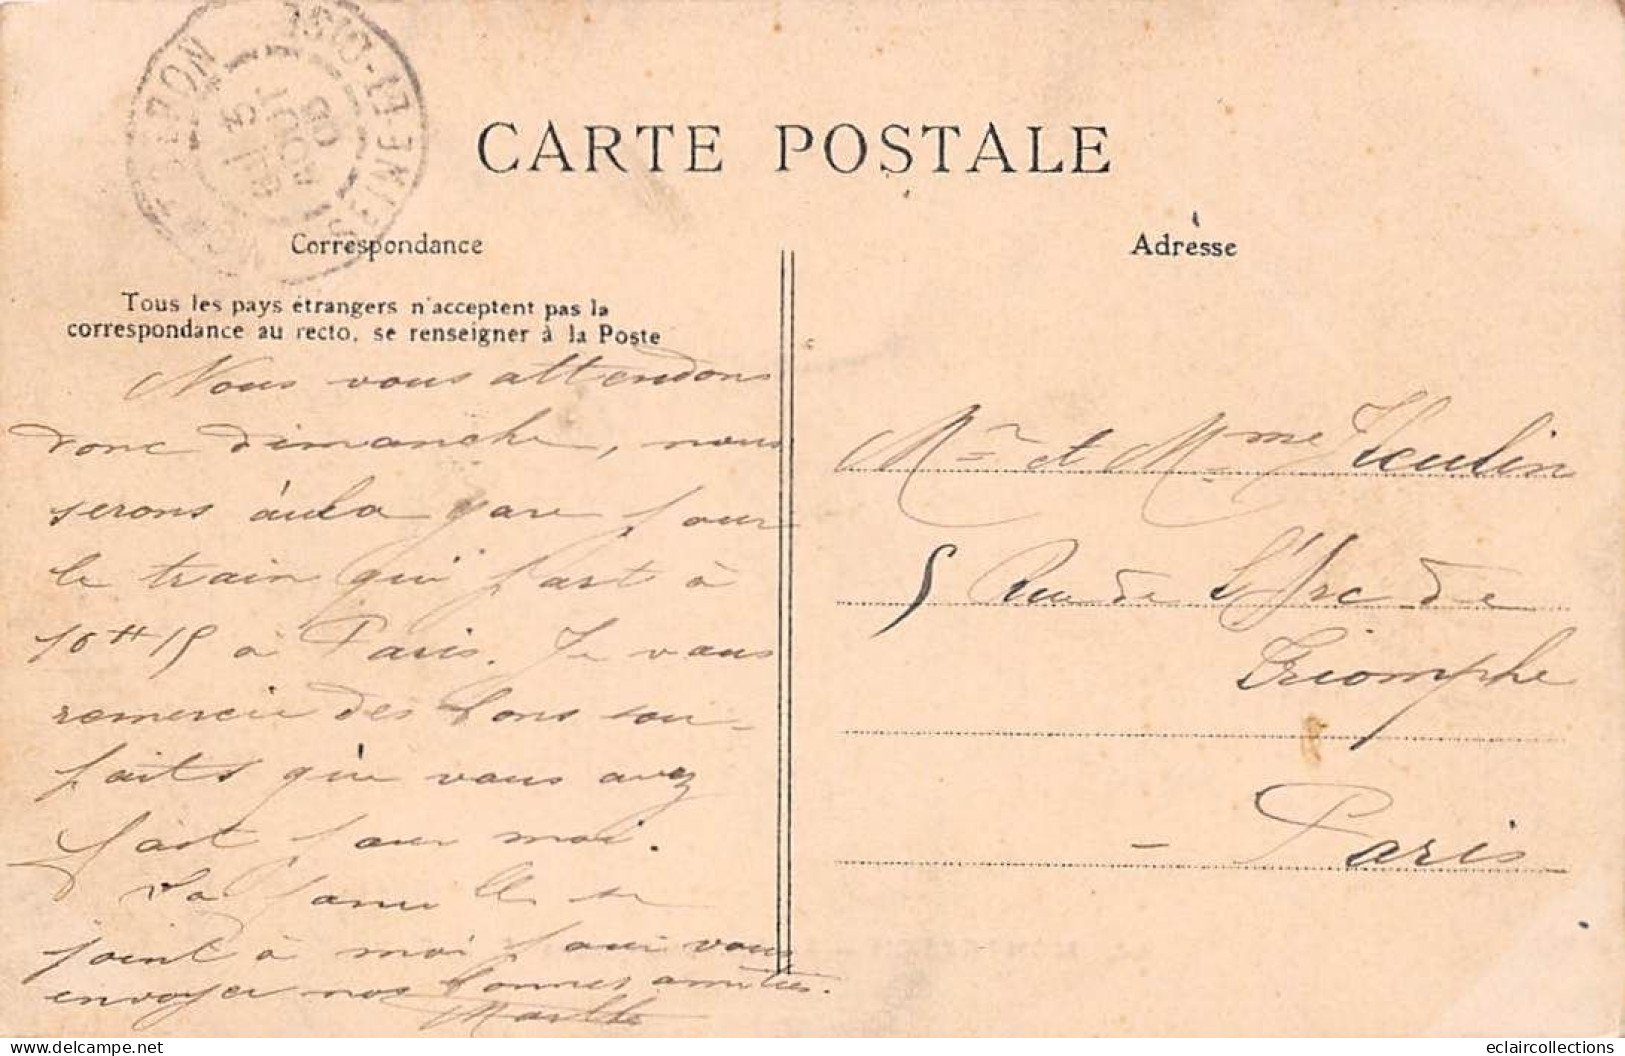 MONTGERON
SEINE-ET-OISE
AOUT
08
CARTE POSTALE
Correspondance
Tous les pays étrangers n'acceptent pas la
correspondance au recto, se renseigner à la Poste
Nous vous attendons
donc dimanche, nous
serons à la gare pour
le train qui part à
10H15 à Paris. Je vous
remercie des bons sou-
faits que vous avez
fait pour moi.
La famille se
joint à moi pour vous
envoyer nos bonnes amitiés.
Marthe
Adresse
Mr et Mme
5 Rue de l'Arc de
Triomphe
- Paris
eclaircollections